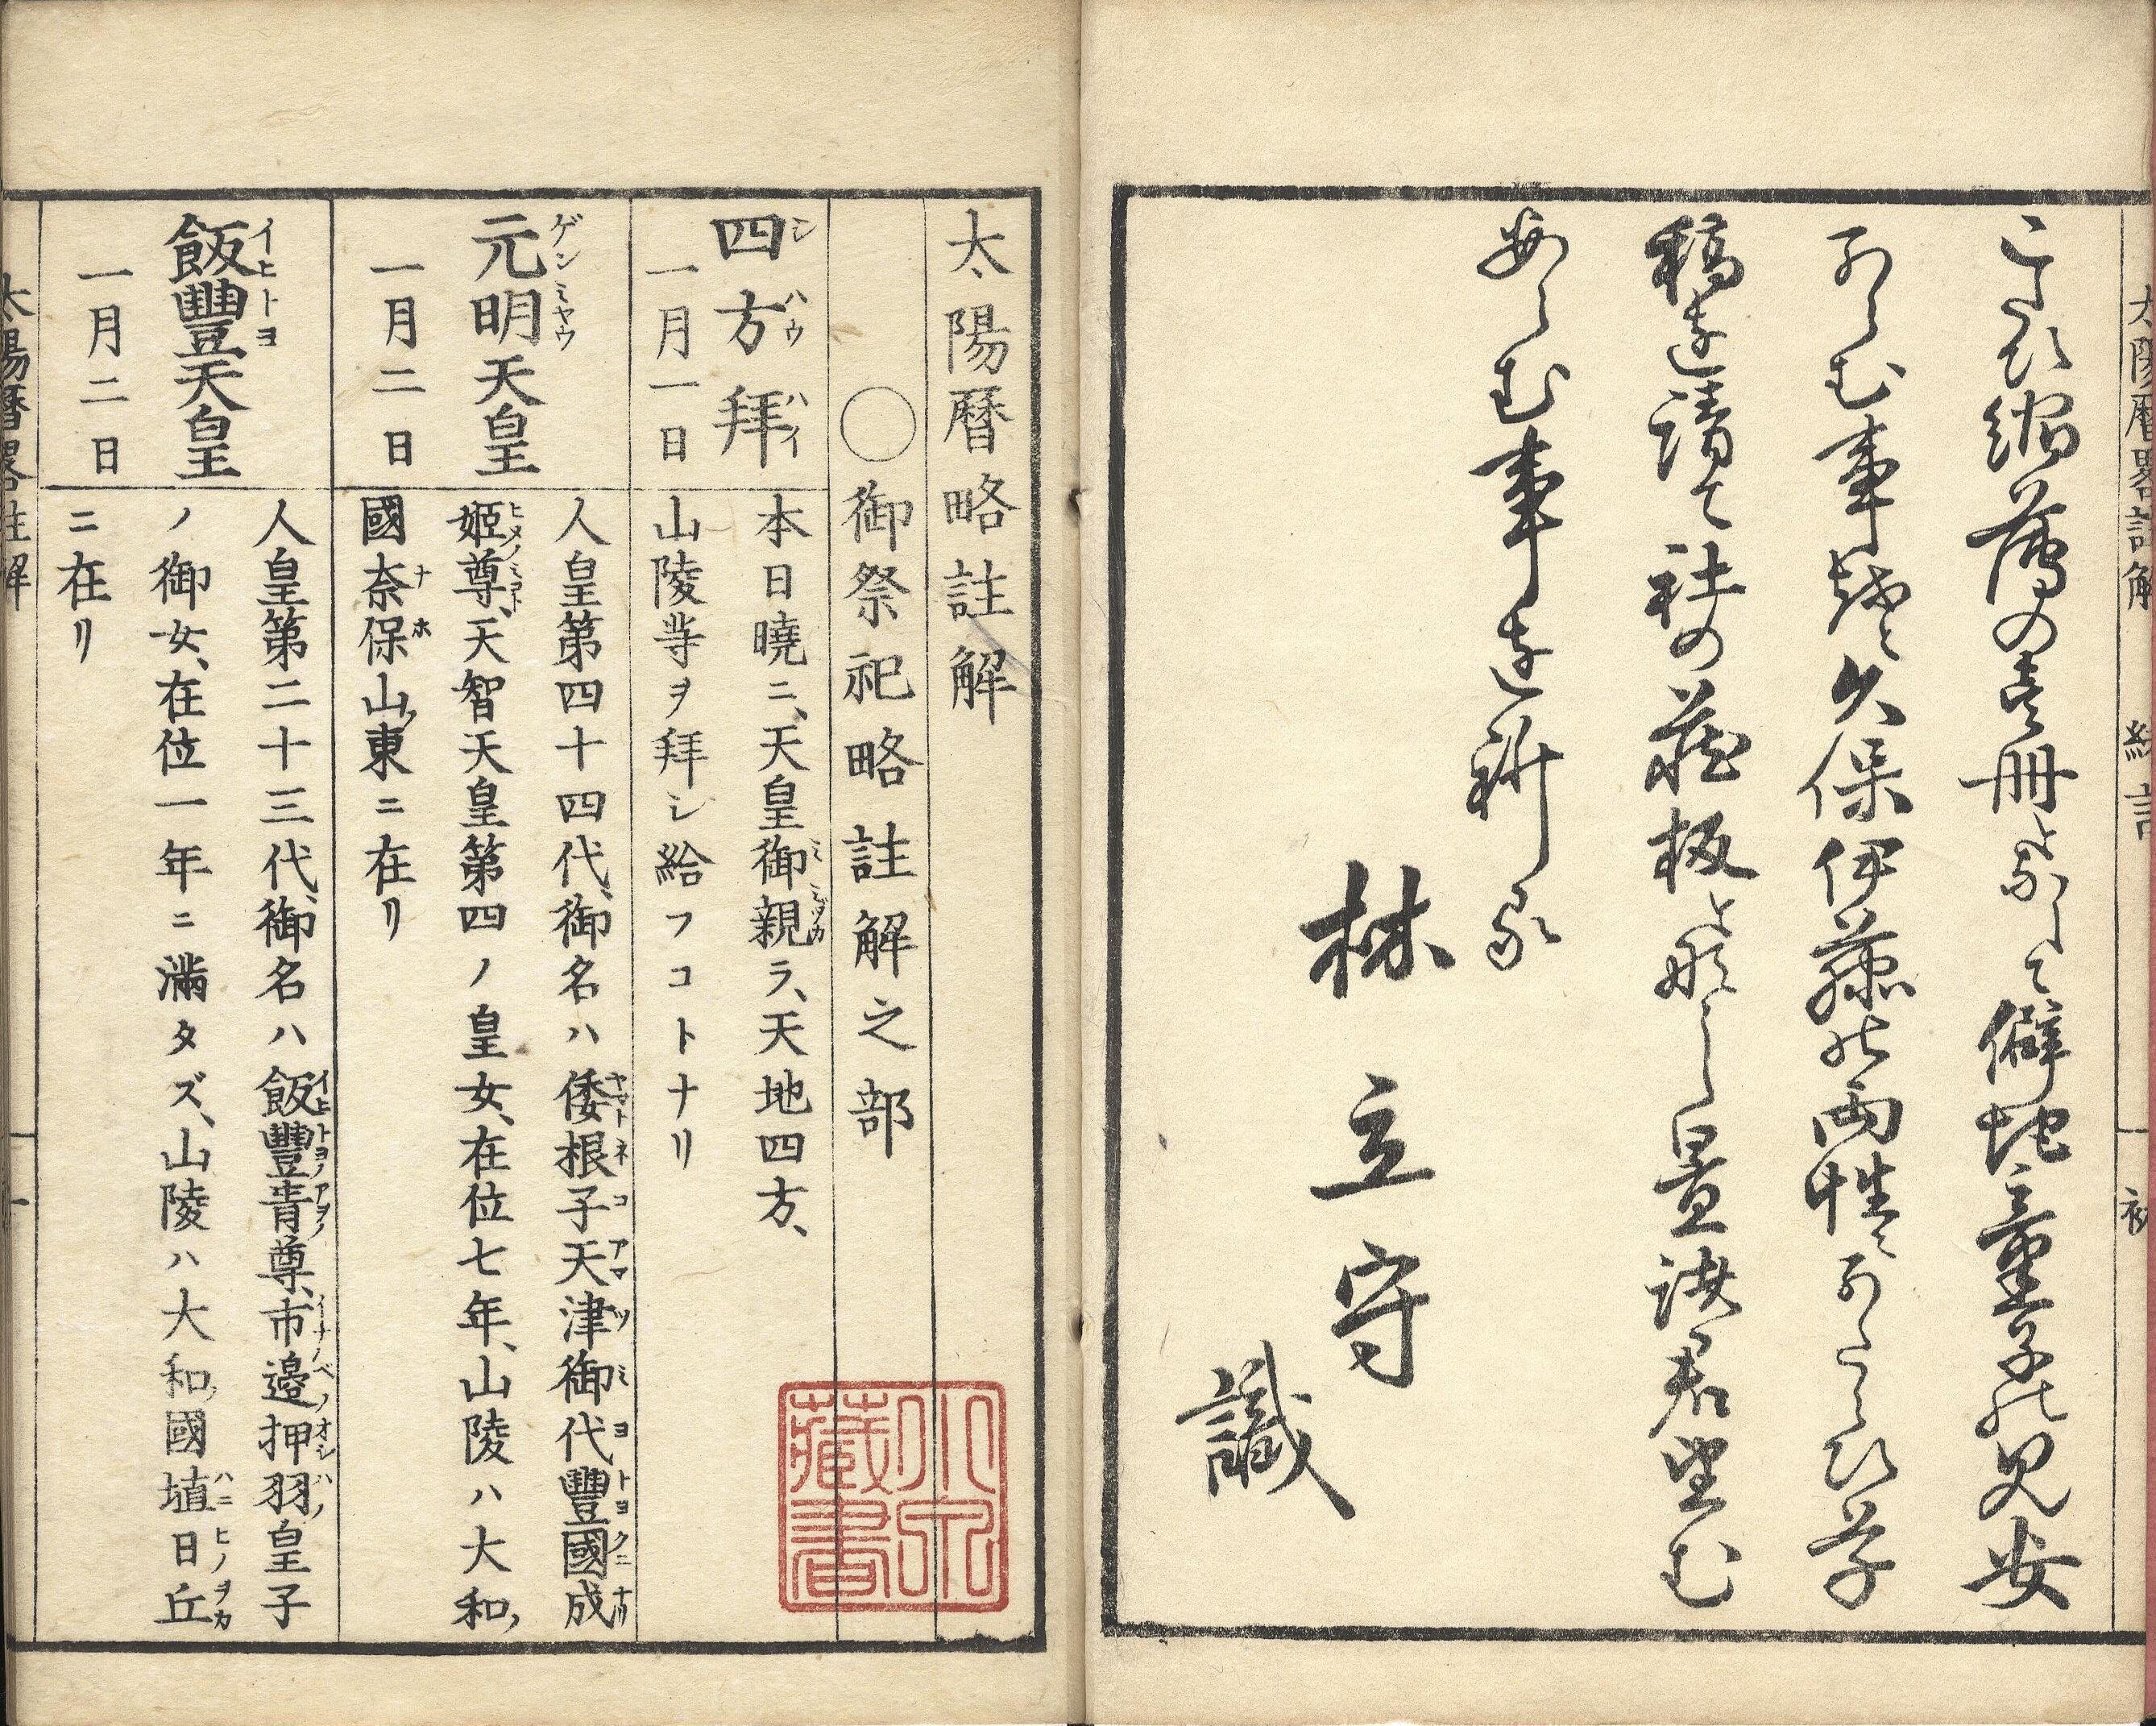 太陽暦畧註解　緒言
こたび縮薄の壱冊となして僻地童子の見安
からむ事を久保伊藤の両性にかたらひ草
稿を請て社の蔵板となし置諸君望む
あらむ事を祈る
林立守
識
太陽暦略註解
○御祭祀略註解之部
四方拜 シハウハイ
一月一日
本日曉ニ、天皇御親ラ、天地四方、
山陵等ヲ拜シ給フコトナリ
元明天皇 ゲンミヤウ
一月二日
人皇第四十四代、御名ハ倭根子天津御代豐國成
姫尊、天智天皇第四ノ皇女、在位七年、山陵ハ大和ノ
國奈保山ノ東ニ在リ
飯豐天皇 イヒトヨ
一月二日
人皇第二十三代、御名ハ飯豐青尊、市邊押羽皇子
ノ御女、在位一年ニ滿タズ、山陵ハ大和ノ國埴日丘
ニ在リ
太陽暦畧註解　一
藏書